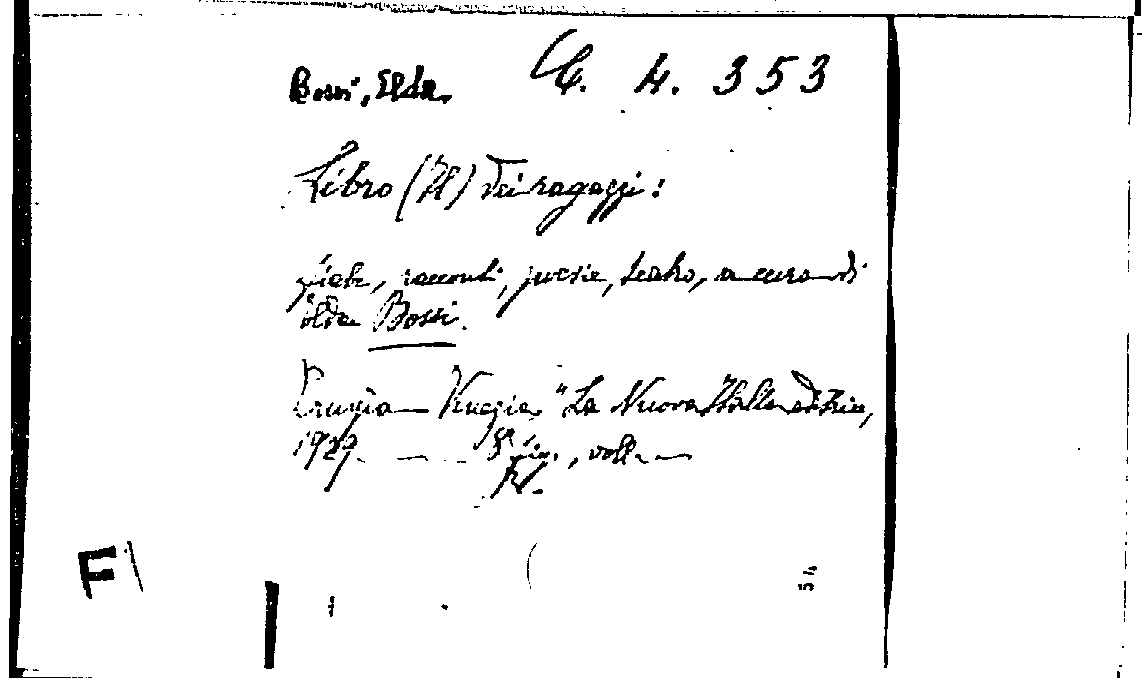 Bossi, Elda. C. 4. 353
Libro (Il) dei ragazzi:
fiabe, racconti, poesie, teatro, a cura di
Elda Bossi.
Perugia - Venezia "La Nuova Italia" editrice,
1929. 8° fig., voll.
F